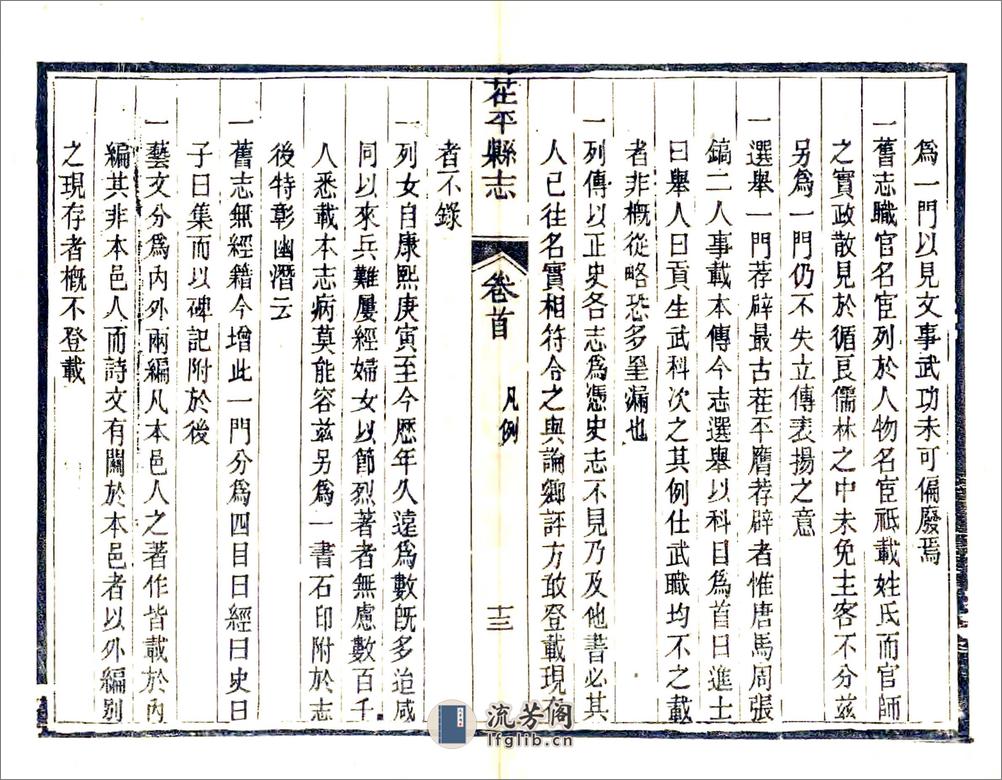 為一門以見文事武功未可偏廢焉
一舊志職官名宦列於人物名宦祗載姓氏而官師
之實政散見於循良儒林之中未免主客不分兹
另為一門仍不失立傳表揚之意
一選舉一門荐辟最古茌平膺荐辟者惟唐馬周張
鎬二人事載本傳今志選舉以科目為首曰進士
曰舉人曰貢生武科次之其例仕武職均不之載
者非概從略恐多罣漏也
一列傳以正史各志為憑史志不見乃及他書必其
人已往名實相符合之輿論鄉評方敢登載現存
茌平縣志
卷首
凡例
十三
者不錄
一列女自康熙庚寅至今歷年久遠為數既多迨咸
同以來兵難屢經婦女以節烈著者無慮數百千
人悉載本志病莫能容兹另為一書石印附於志
後特彰幽潛云
一舊志無經籍今增此一門分為四目曰經曰史曰
子曰集而以碑記附於後
一藝文分為內外兩編凡本邑人之著作皆載於內
編其非本邑人而詩文有關於本邑者以外編別
之現存者概不登載
流芳阁
lfglib.cn